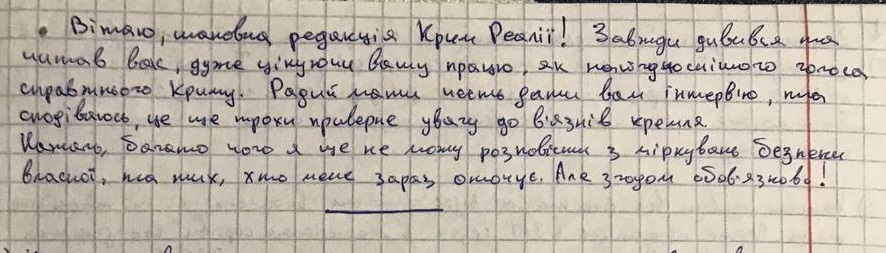 • Вітаю, шановна редакція Крим Реалії! Завжди дивився та
читав вас, дуже цінуючи вашу працю, як найгучнішого голоса
справжнього Криму. Радий мати честь дати вам інтерв'ю, та
сподіваюсь, це ще трохи приверне увагу до в'язнів кремля.
багато чого я ще не можу розповісти з міркувань безпеки
власної, та тих, хто мене зараз оточує. Але згодом обов'язково!